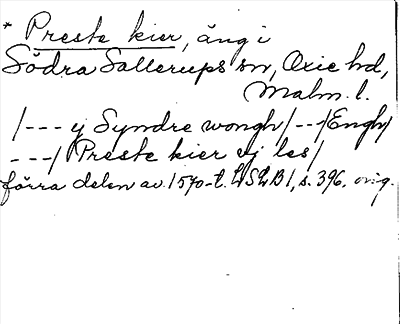 * Preste kier, äng i
Södra Sallerups sn, Oxie hd,
Malm. l.
/--- y Syndre wongh/--/Engh/
---/ Preste kier vj les/
förra delen av 1570-t. LSLB1, s. 396. orig.